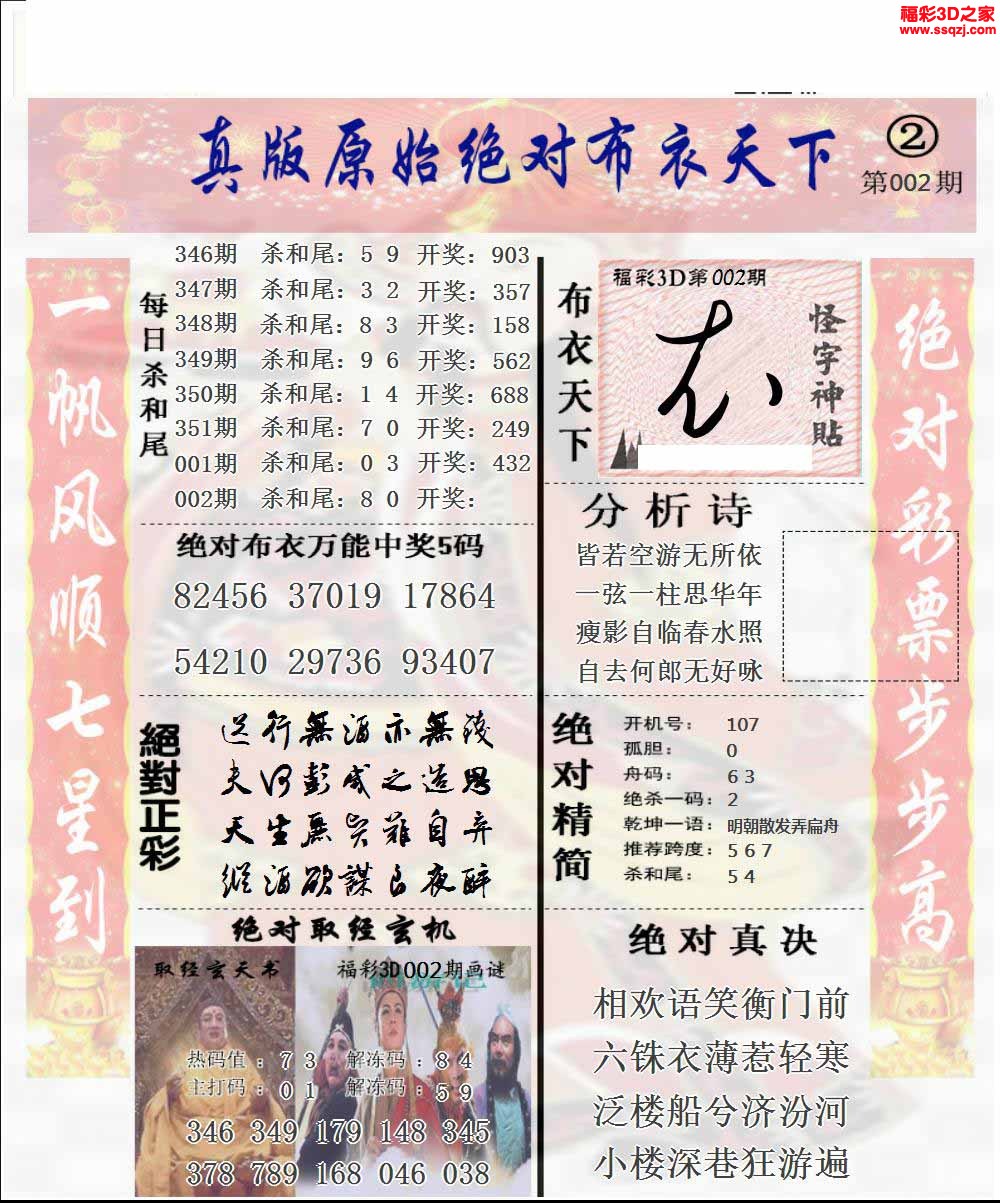 福彩3D之家
www.ssqzj.com
真版原始绝对布衣天下
②
第002期
一帆风顺七星到
每日杀和尾
346期 杀和尾: 5 9 开奖: 903
347期 杀和尾: 3 2 开奖: 357
348期 杀和尾: 8 3 开奖: 158
349期 杀和尾: 9 6 开奖: 562
350期 杀和尾: 1 4 开奖: 688
351期 杀和尾: 7 0 开奖: 249
001期 杀和尾: 0 3 开奖: 432
002期 杀和尾: 8 0 开奖:
绝对布衣万能中奖5码
82456 37019 17864
54210 29736 93407
絕對正彩
送行無酒亦無錢
夫何彭咸之造思
天生麗質難自弃
縱酒欲謀良夜醉
绝对取经玄机
取经玄天书
福彩3D002期画谜
热码值:7 3 解冻码:8 4
主打码:0 1 解冻码:5 9
346 349 179 148 345
378 789 168 046 038
布衣天下
福彩3D第002期
怪字神貼
分析诗
皆若空游无所依
一弦一柱思华年
瘦影自临春水照
自去何郎无好咏
绝对精简
开机号: 107
孤胆: 0
舟码: 6 3
绝杀一码: 2
乾坤一语: 明朝散发弄扁舟
推荐跨度: 5 6 7
杀和尾: 5 4
绝对真决
相欢语笑衡门前
六铢衣薄惹轻寒
泛楼船兮济汾河
小楼深巷狂游遍
绝对彩票步步高